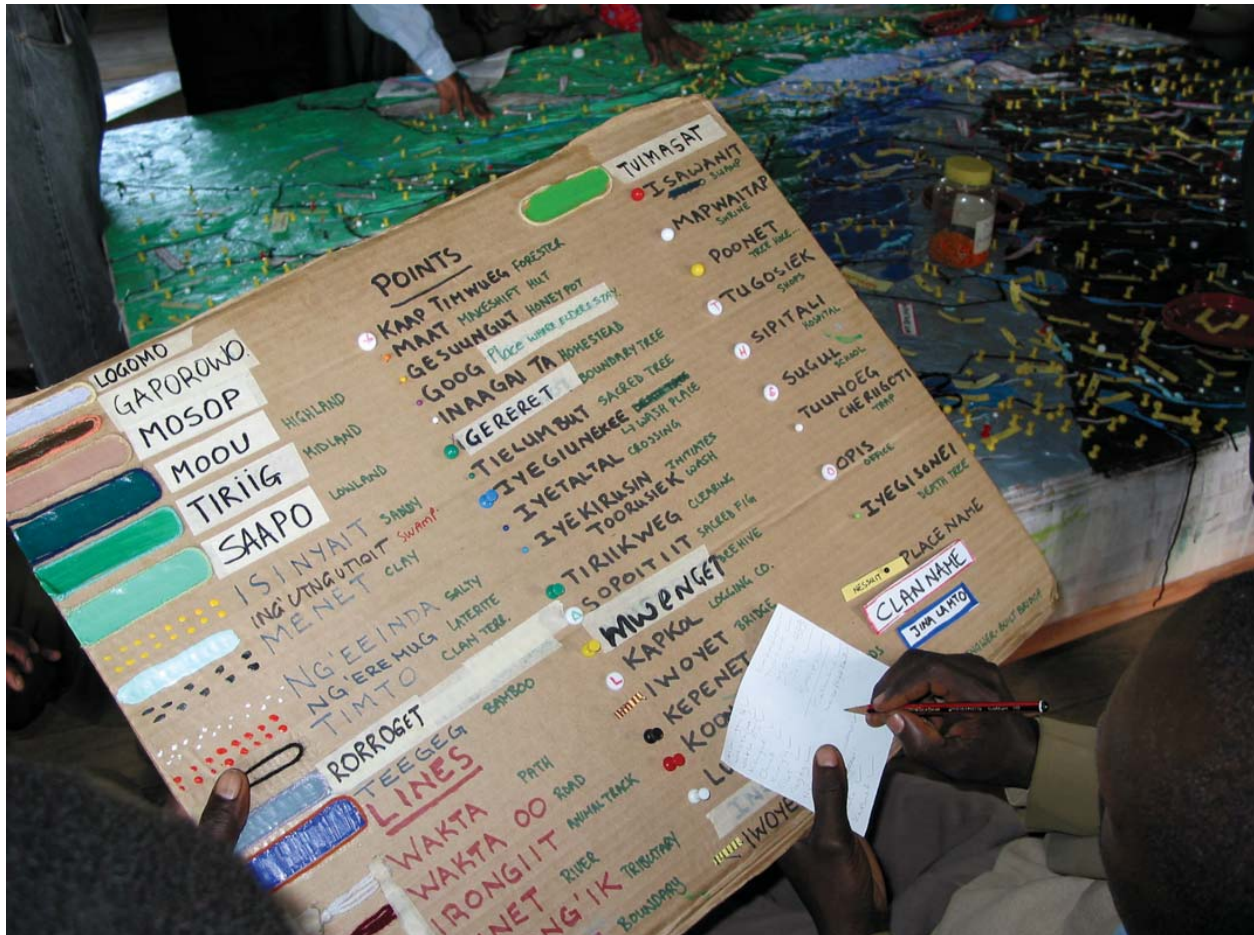 LOGOMO
GAPOROWO.
MOSOP HIGHLAND
MOOU MIDLAND
TIRIIG LOWLAND
SAAPO
ISINYAIT SANDY
INGUTNGUTIOIT SWAMP
MENET CLAY
NG'EEINDA SALTY
NG'ERE MUG LATERITE
TIMTO CLAN TERR.
RORROGET
TEEGEG BAMBOO
LINES
WAKTA PATH
WAKTA OO ROAD
IRONGIIT ANIMAL TRACK
RIVER
TRIBUTARY
BOUNDARY
POINTS
KAAP TIMWUEG FORESTER
MAAT MAKESHIFT HUT
GESUUNGUT HONEY POT
GOOG Place WHERE ELDERS STAY
INAAGAI TA HOMESTEAD
IGERERET BOUNDARY TREE
TIELUMBUT SACRED TREE
IYEGIUNEKEE WASH PLACE
IYETALTAL CROSSING
IYEKIRUSIN INITIATES
TOORUSIEK WASH
TIRIIKWEG CLEARING
SOPOITIIT SACRED FIG
MWENGET BEEHIVE
L KAPKOL LOGGING CO.
IWOYET BRIDGE
KEPENET
TUIMASAT
ISAWANIT
SWAMP
MAPWAITAP
SHRINE
POONET
T TUGOSIEK
SHOPS
H SIPITALI
HOSPITAL
SUGUL
SCHOOL
TUUNOEG
CHERIIGOTI
TRAP
O OPIS
OFFICE
IYEGISONEI
DEATH TREE
NESSUIT PLACE NAME
CLAN NAME
JINA LA MTO